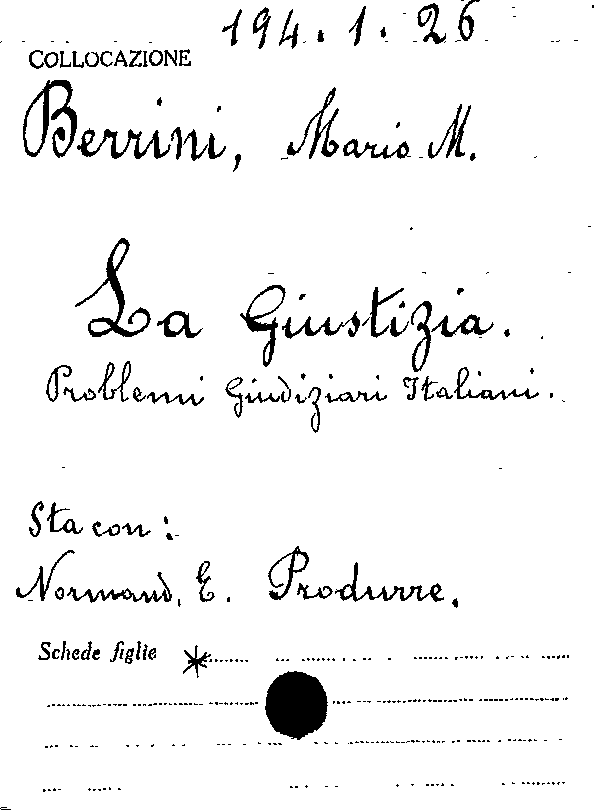 194.1.26
COLLOCAZIONE
Berrini, Mario M.
La Giustizia.
Problemi Giudiziari Italiani.
Sta con:
Normand, E. Produrre.
Schede figlie *